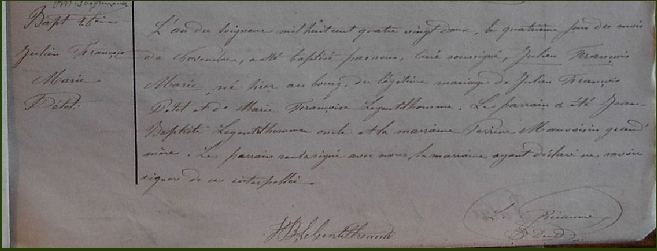 Bapt. 26e
Julien François
Marie
Petot.
L'an du Seigneur mil huit cent quatre vingt deux, le quatrième jour du mois
de Novembre, a été baptisé par nous, Curé soussigné, Julien François
Marie, né hier au bourg, du légitime mariage de Julien François
Petot et de Marie Françoise Legentilhomme. Le parrain a été Jean
Baptiste Legentilhomme oncle et la marraine Perrine Mauvoisin grand'
mère. Le parrain seul a signé avec nous, la marraine ayant déclaré ne savoir
signer de ce interpellée.
JB LeGentilhomme